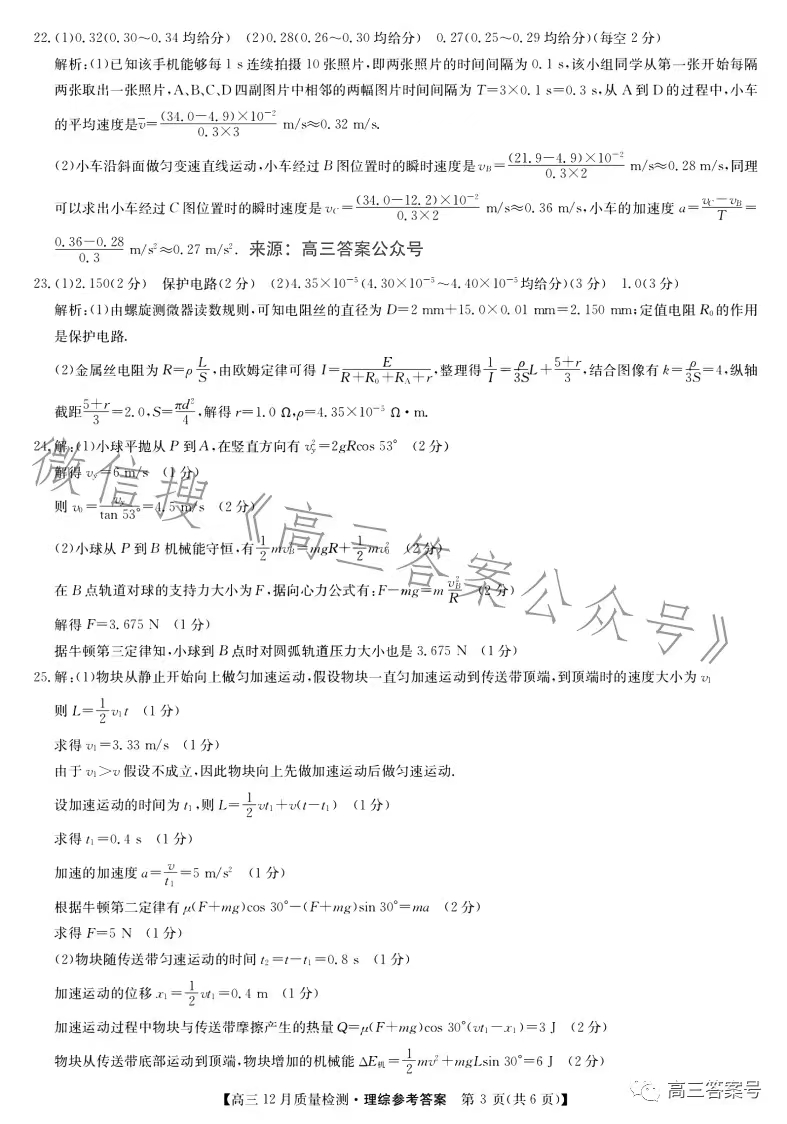 22.(1)0.32(0.30～0.34 均给分) (2)0.28(0.26～0.30 均给分) 0.27(0.25～0.29 均给分)(每空 2 分)
解析:(1)已知该手机能够每 1 s 连续拍摄 10 张照片,即两张照片的时间间隔为 0.1 s,该小组同学从第一张开始每隔
两张取出一张照片,A、B、C、D 四副图片中相邻的两幅图片时间间隔为 T=3×0.1 s=0.3 s,从 A 到 D 的过程中,小车
的平均速度是 v̄=(34.0-4.9)×10⁻²/(0.3×3) m/s≈0.32 m/s.
(2)小车沿斜面做匀变速直线运动,小车经过 B 图位置时的瞬时速度是 v_B=(21.9-4.9)×10⁻²/(0.3×2) m/s≈0.28 m/s,同理
可以求出小车经过 C 图位置时的瞬时速度是 v_C=(34.0-12.2)×10⁻²/(0.3×2) m/s≈0.36 m/s,小车的加速度 a=(v_C-v_B)/T=
(0.36-0.28)/0.3 m/s²≈0.27 m/s². 来源：高三答案公众号
23.(1)2.150(2 分) 保护电路(2 分) (2)4.35×10⁻⁵(4.30×10⁻⁵～4.40×10⁻⁵均给分)(3 分) 1.0(3 分)
解析:(1)由螺旋测微器读数规则,可知电阻丝的直径为 D=2 mm+15.0×0.01 mm=2.150 mm;定值电阻 R₀的作用
是保护电路.
(2)金属丝电阻为 R=ρL/S,由欧姆定律可得 I=E/(R+R₀+R_A+r),整理得 1/I=ρ/(3S)L+(5+r)/3,结合图像有 k=ρ/(3S)=4,纵轴
截距(5+r)/3=2.0,S=πd²/4,解得 r=1.0 Ω,ρ=4.35×10⁻⁵ Ω·m.
24.解:(1)小球平抛从 P 到 A,在竖直方向有 v_y²=2gRcos 53° (2 分)
解得 v_y=6 m/s (1 分)
则 v₀=v_y/tan 53°=4.5 m/s (2 分)
(2)小球从 P 到 B 机械能守恒,有 1/2 mv_B²=mgR+1/2 mv₀² (2 分)
在 B 点轨道对球的支持力大小为 F,据向心力公式有:F-mg=m v_B²/R (2 分)
解得 F=3.675 N (1 分)
据牛顿第三定律知,小球到 B 点时对圆弧轨道压力大小也是 3.675 N (1 分)
微信搜《高三答案公众号》
25.解:(1)物块从静止开始向上做匀加速运动,假设物块一直匀加速运动到传送带顶端,到顶端时的速度大小为 v₁
则 L=1/2 v₁t (1 分)
求得 v₁=3.33 m/s (1 分)
由于 v₁>v 假设不成立,因此物块向上先做加速运动后做匀速运动.
设加速运动的时间为 t₁,则 L=1/2 vt₁+v(t-t₁) (1 分)
求得 t₁=0.4 s (1 分)
加速的加速度 a=v/t₁=5 m/s² (1 分)
根据牛顿第二定律有 μ(F+mg)cos 30°-(F+mg)sin 30°=ma (2 分)
求得 F=5 N (1 分)
(2)物块随传送带匀速运动的时间 t₂=t-t₁=0.8 s (1 分)
加速运动的位移 x₁=1/2 vt₁=0.4 m (1 分)
加速运动过程中物块与传送带摩擦产生的热量 Q=μ(F+mg)cos 30°(vt₁-x₁)=3 J (2 分)
物块从传送带底部运动到顶端,物块增加的机械能 ΔE机=1/2 mv²+mgLsin 30°=6 J (2 分)
【高三 12 月质量检测·理综参考答案 第 3 页(共 6 页)】
高三答案号